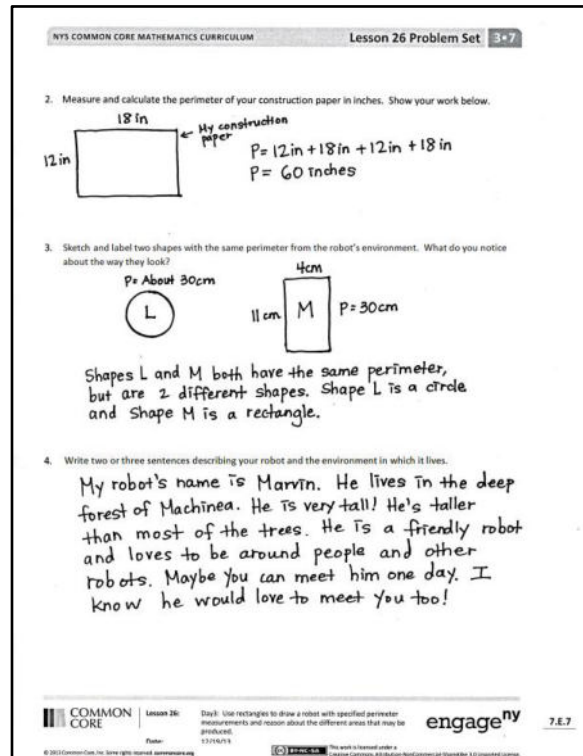 NYS COMMON CORE MATHEMATICS CURRICULUM
Lesson 26 Problem Set
3•7
2. Measure and calculate the perimeter of your construction paper in inches. Show your work below.
18 in
My construction
paper
12 in
P= 12in + 18in + 12in + 18 in
P= 60 inches
3. Sketch and label two shapes with the same perimeter from the robot's environment. What do you notice
about the way they look?
P= About 30cm
L
4cm
11 cm
M
P= 30cm
Shapes L and M both have the same perimeter,
but are 2 different shapes. Shape L is a circle
and Shape M is a rectangle.
4. Write two or three sentences describing your robot and the environment in which it lives.
My robot's name is Marvin. He lives in the deep
forest of Machinea. He is very tall! He's taller
than most of the trees. He is a friendly robot
and loves to be around people and other
robots. Maybe you can meet him one day. I
know he would love to meet you too!
COMMON
CORE
Lesson 26:
Day 3: Use rectangles to draw a robot with specified perimeter
measurements and reason about the different areas that may be
produced.
Date:
engageny
7.E.7
© 2013 Common Core, Inc. Some rights reserved. commoncore.org
BY-NC-SA
This work is licensed under a
Creative Commons Attribution-NonCommercial-ShareAlike 3.0 Unported License.